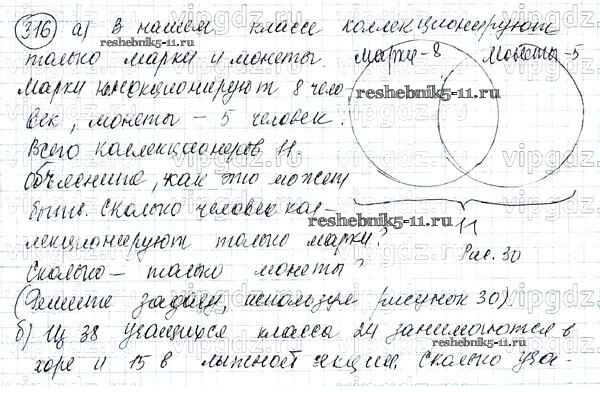 316 а) В нашем классе коллекционируют
только марки и монеты. Марки - 8 Монеты - 5
Марки коллекционируют 8 чело-
век, монеты - 5 человек.
Всего коллекционеров 11.
Объясните, как это может
быть. Сколько человек кол-
лекционируют только марки? 11
Сколько - только монеты? Рис. 30
(Решите задачу, используя рисунок 30)
б) Из 38 учащихся класса 24 занимаются в
хоре и 15 в лыжной секции. Сколько уча-
reshebnik5-11.ru
reshebnik5-11.ru
reshebnik5-11.ru
vipgdz